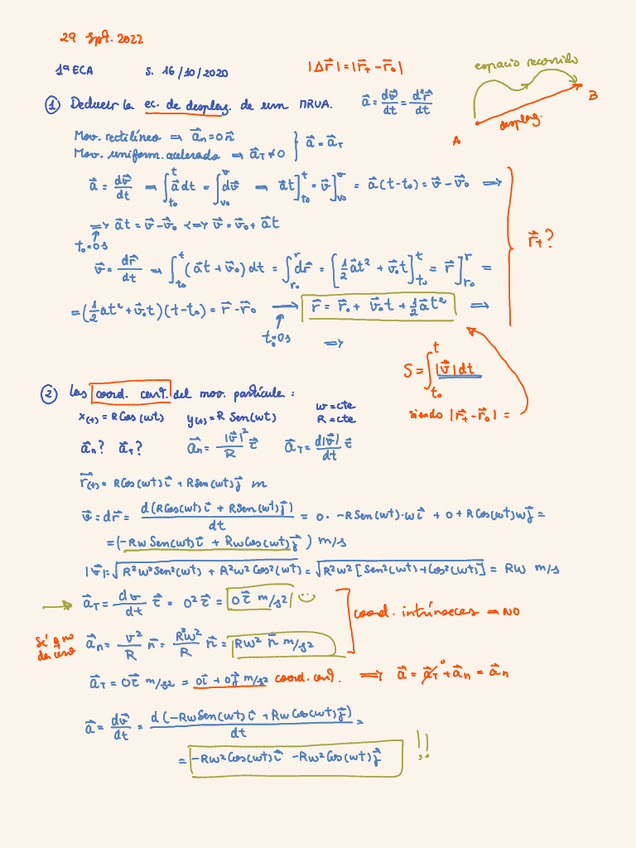 29 Spt. 2022
1ª ECA S. 16/10/2020 |Δr⃗| = |r⃗₊ - r⃗₀|
espacio recorrido
A desplaz. B
① Deducir la ec. de desplaz. de un MRUA. a⃗ = dv⃗/dt = d²r⃗/dt
Mov. rectilíneo ⇒ a⃗n = 0 n⃗
Mov. uniform. acelerado ⇒ a⃗T ≠ 0 } a⃗ = a⃗T
a⃗ = dv⃗/dt ⇒ ∫t₀^t a⃗ dt = ∫v₀^v dv⃗ ⇒ a⃗t]t₀^t = v⃗]v₀^v = a⃗(t-t₀) = v⃗ - v⃗₀ ⇒
⇒ a⃗t = v⃗ - v⃗₀ <⇒> v⃗ = v⃗₀ + a⃗t
t₀=0s
r⃗₊?
v⃗ = dr⃗/dt ⇒ ∫t₀^t (a⃗t + v⃗₀) dt = ∫r₀^r dr⃗ = [½ a⃗t² + v⃗₀t]t₀^t = r⃗]r₀^r =
= (½ at² + v⃗₀t)(t-t₀) = r⃗ - r⃗₀ → r⃗ = r⃗₀ + v⃗₀t + ½ a⃗t² ⇒
t₀=0s ⇒
S = ∫t₀^t |v⃗| dt
siendo |r⃗₊ - r⃗₀| =
② Las coord. cart. del mov. partícula:
x(t) = R Cos(wt) y(t) = R Sen(wt) w = cte
R = cte
a⃗n? a⃗T? a⃗n = |v⃗|²/R τ⃗ a⃗T = d|v⃗|/dt τ⃗
r⃗(t) = R Cos(wt) i⃗ + R Sen(wt) j⃗ m
v⃗ = dr⃗ = d(R Cos(wt) i⃗ + R Sen(wt) j⃗)/dt = 0 · -R Sen(wt)·w i⃗ + 0 + R Cos(wt) w j⃗ =
= (-Rw Sen(wt) i⃗ + Rw Cos(wt) j⃗) m/s
|v⃗| = √R²w² Sen²(wt) + R²w² Cos²(wt) = √R²w² [Sen²(wt) + Cos²(wt)] = Rw m/s
→ a⃗T = dv/dt τ⃗ = 0² τ⃗ = 0 τ⃗ m/s²
coord. intrínsecas ⇒ NO
a⃗n = v²/R n⃗ = R²w²/R n⃗ = Rw² n⃗ m/s²
a⃗T = 0 τ⃗ m/s² = 0 i⃗ + 0 j⃗ m/s² coord. cart. ⇒ a⃗ = a⃗T⁰ + a⃗n = a⃗n
a⃗ = dv⃗/dt = d(-Rw Sen(wt) i⃗ + Rw Cos(wt) j⃗)/dt =
= -Rw² Cos(wt) i⃗ - Rw² Cos(wt) j⃗ !!